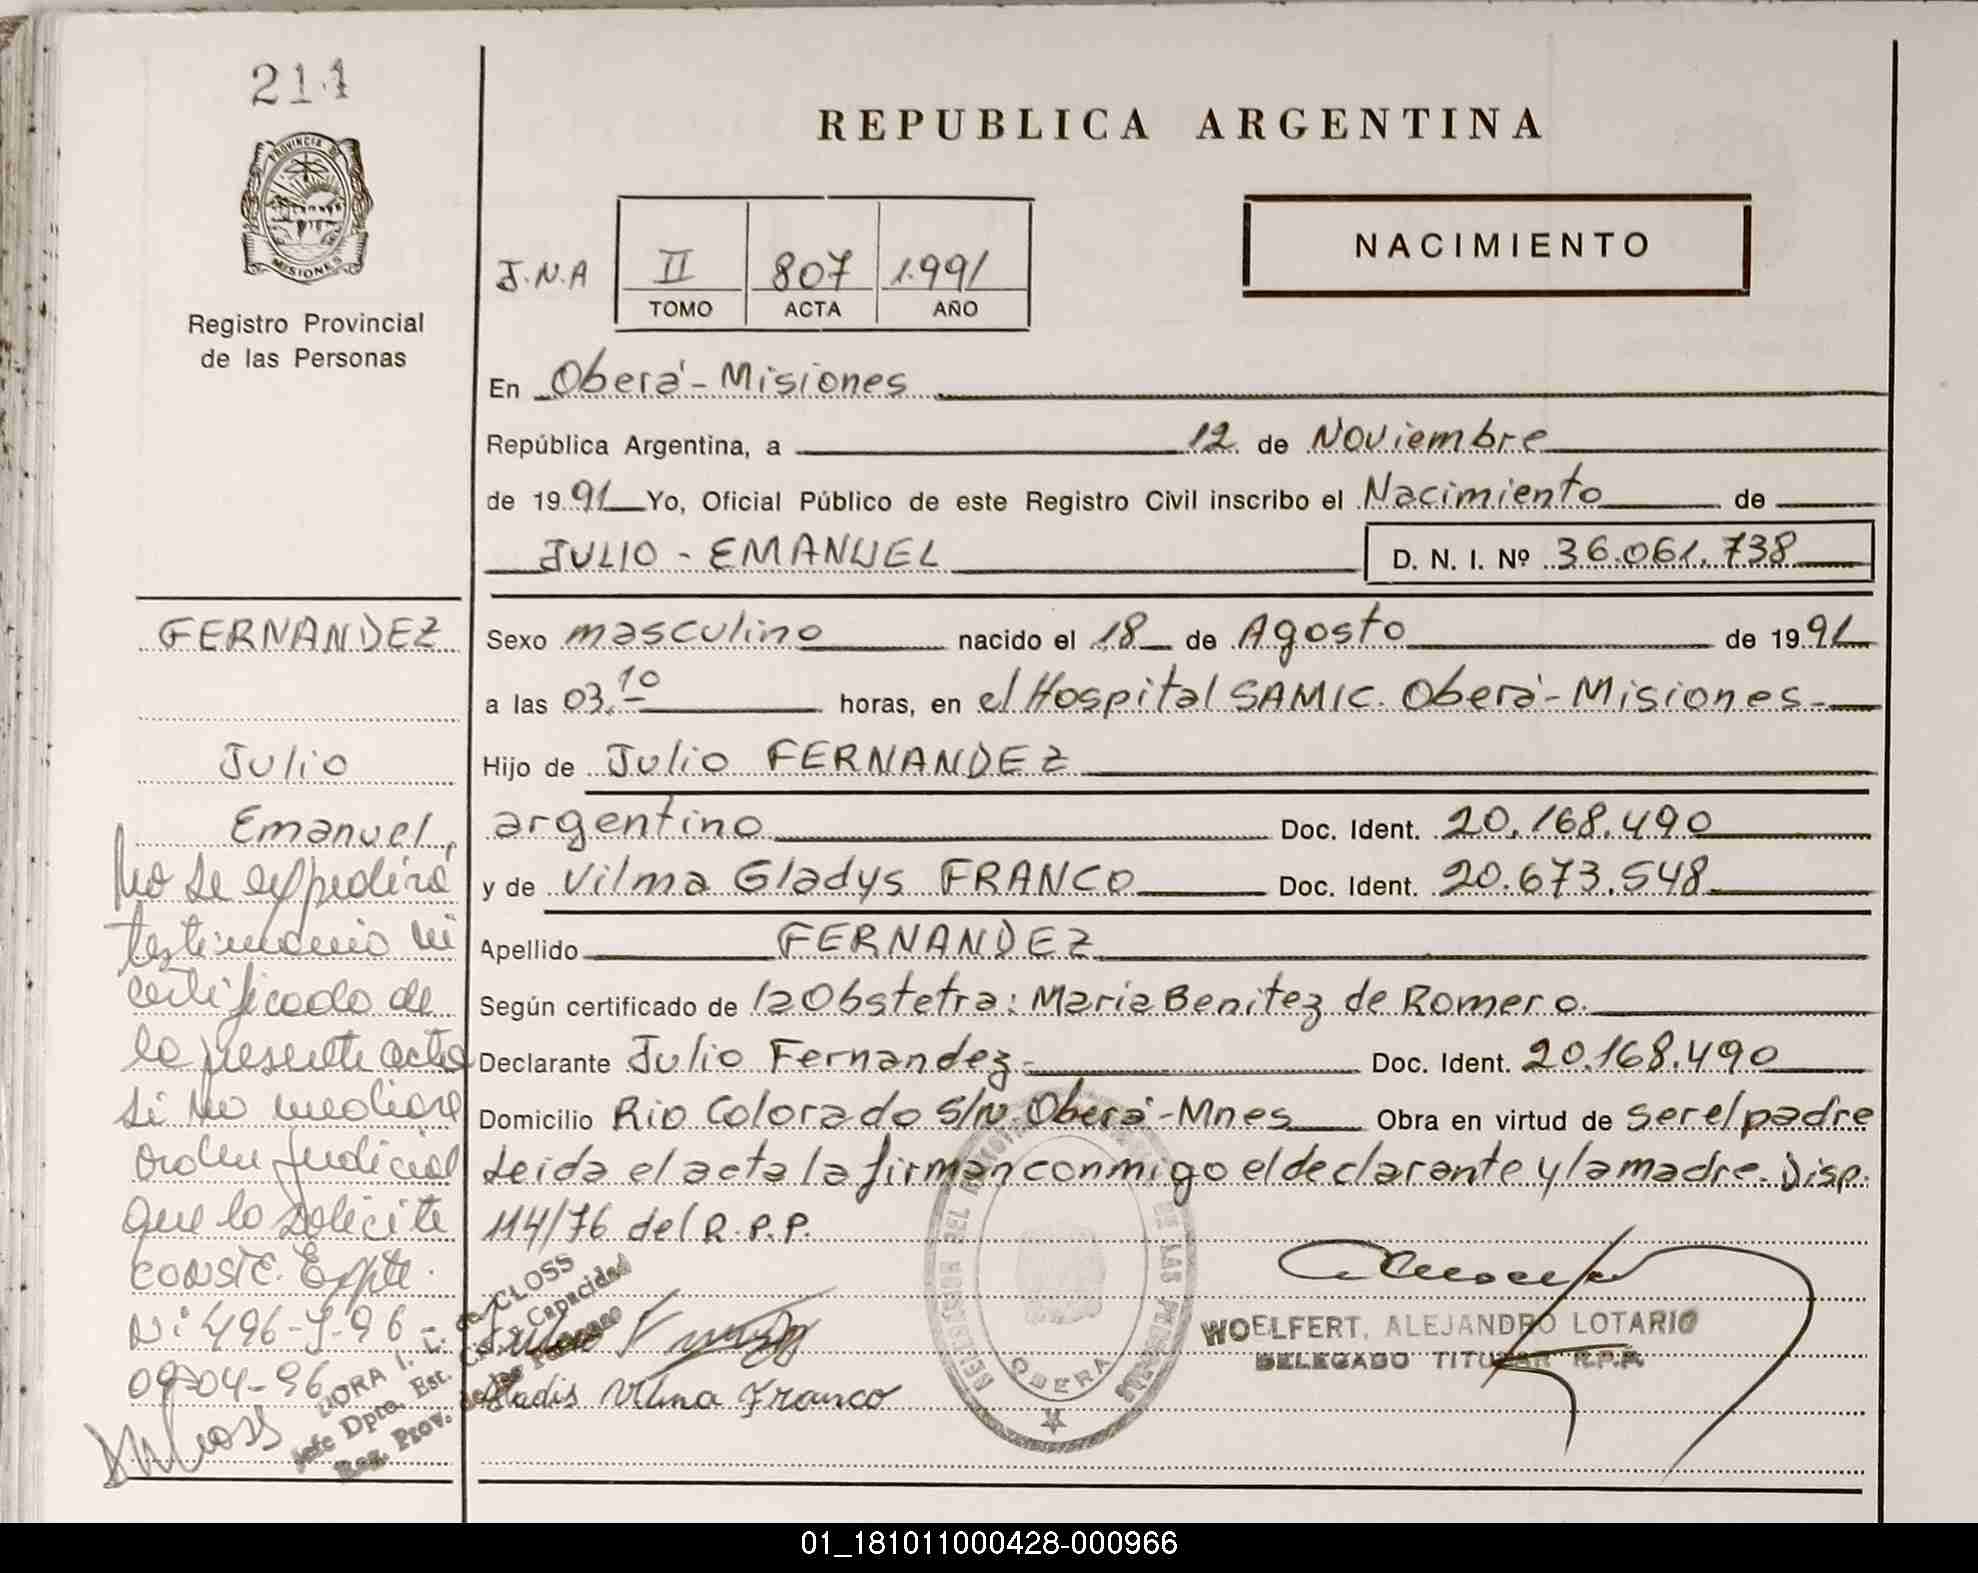 214
PROVINCIA DE
MISIONES
Registro Provincial
de las Personas
REPUBLICA ARGENTINA
NACIMIENTO
J.N.A II 807 1.991
TOMO ACTA AÑO
En Oberá-Misiones
República Argentina, a 12 de Noviembre
de 1991 Yo, Oficial Público de este Registro Civil inscribo el Nacimiento de
JULIO - EMANUEL D. N. I. Nº 36.061.738
FERNANDEZ
Julio
Emanuel
No se expedirá
testimonio ni
certificado de
la presente acta
si no mediare
orden judicial
que lo solicite
CONSTE. Expte.
Nº 496-J-96-
09-04-96
Sexo masculino nacido el 18 de Agosto de 1991
a las 03.10 horas, en el Hospital SAMIC. Oberá-Misiones-
Hijo de Julio FERNANDEZ
argentino Doc. Ident. 20.168.490
y de Vilma Gladys FRANCO Doc. Ident. 20.673.548
Apellido FERNANDEZ
Según certificado de la Obstetra: María Benitez de Romero.
Declarante Julio Fernandez.- Doc. Ident. 20.168.490
Domicilio Rio Colorado S/N. Oberá-Mnes Obra en virtud de ser el padre
Leida el acta la firman conmigo el declarante y la madre. Disp.
114/76 del R.P.P.
I. L. de CLOSS
Jefe Dpto. Est. Civ. y Capacidad
Reg. Prov. de las Personas
Gladis Vilma Franco
DE LAS PERSONAS
OBERA
WOELFERT, ALEJANDRO LOTARIO
DELEGADO TITULAR R.P.P.
01_181011000428-000966